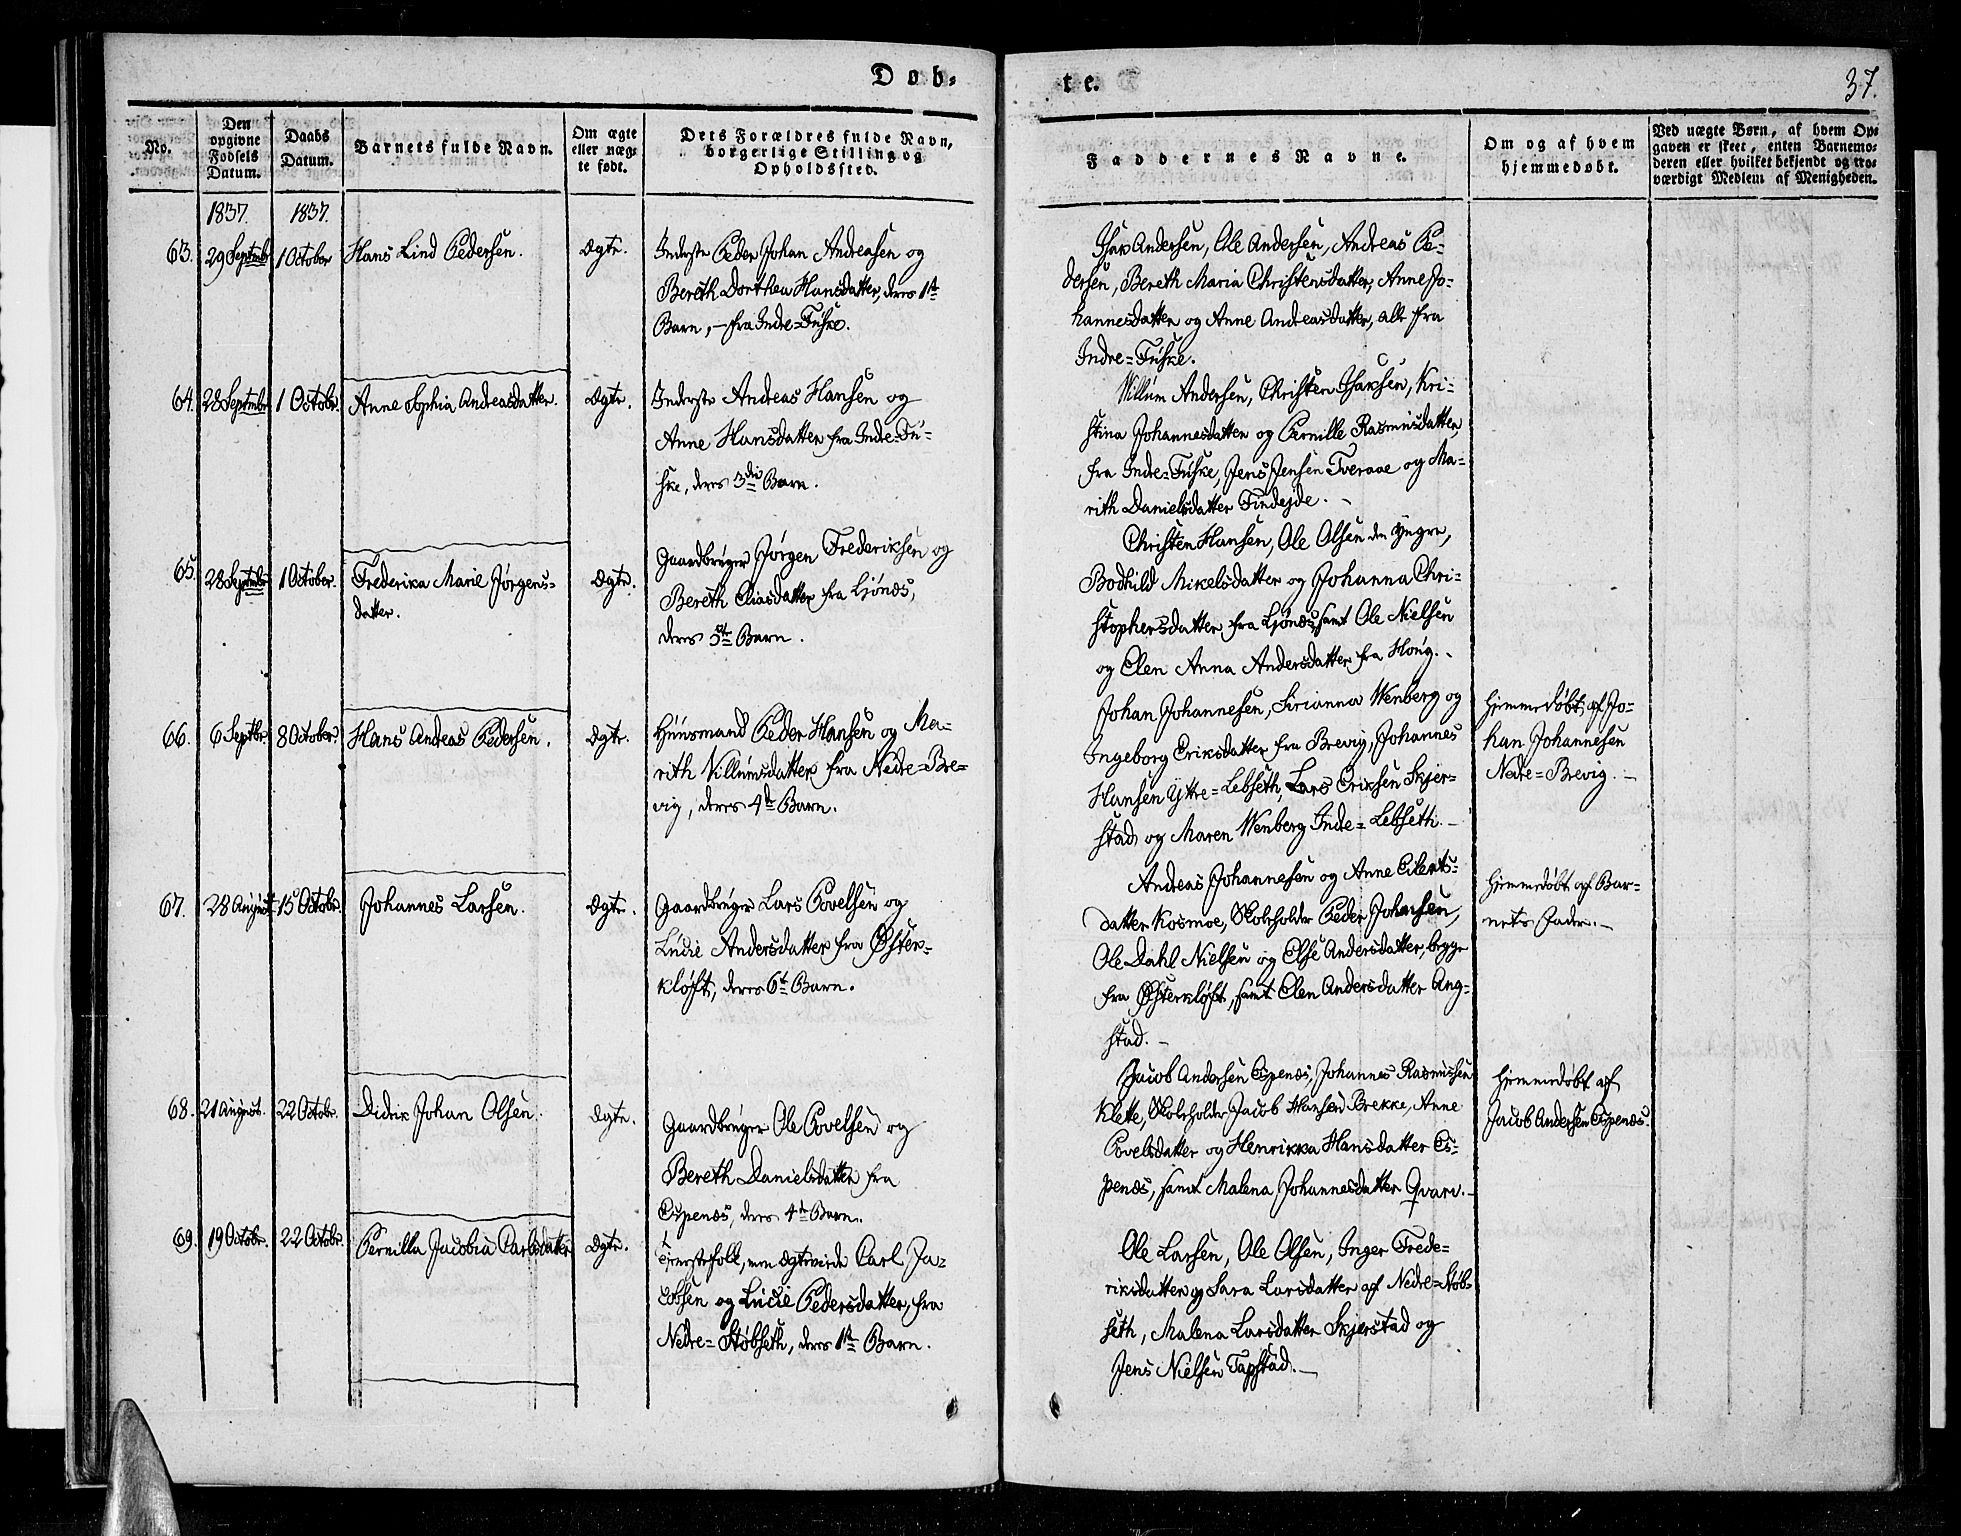 Døb-
te.
37.
No.
Den
opgivne
Fødsels
Datum.
Daabs
Datum.
Barnets fulde Navn.
Om ægte
eller uæg-
te født.
Dets Forældres fulde Navn,
borgerlige Stilling og
Opholdssted.
Faddernes Navne.
Om og af hvem
hjemmedøbt.
Ved uægte Børn, af hvem Op-
gaven er skeet, enten Barnemo-
deren eller hvilket bekjendt og tro-
værdigt Medlem af Menigheden.
1837.
1837.
63.
29 Septembr
1 October
Hans Lind Pedersen.
Ægte.
Inderste Peder Johan Andreasen og
Bereth Dorthea Hansdatter, deres 1ste
Barn, – fra Indre=Fuske.
Isak Andersen, Ole Andersen, Andreas Pe-
dersen, Bereth Maria Christensdatter, Anne Jo-
hannesdatter og Anne Andreasdatter, alle fra
Indre=Fuske.
64.
28 Septembr
1 Octobr.
Anne Sophia Andreasdatter.
Ægte.
Inderste Andreas Hansen og
Anne Hansdatter fra Inde=Fu-
ske, deres 3die Barn.
Villum Andersen, Christen Isaksen, Kri-
stina Johannesdatter og Pernille Rasmusdatter,
fra Indre=Fuske, Jens Jensen Tveraae og Ma-
rith Danielsdatter Findejde. –
65.
28 Septembr
1 October.
Frederika Marie Jørgens-
datter.
Ægte.
Gaardbruger Jørgen Frederiksen og
Bereth Eliasdatter fra Ljønes,
deres 5te Barn.
Christen Hansen, Ole Olsen den Yngre,
Bodhild Mikelsdatter og Johanna Chri-
stophersdatter fra Ljønes, samt Ole Nielsen
og Elen Anna Andersdatter fra Høug.
66.
6 Septbr.
8 October.
Hans Andreas Pedersen.
Ægte.
Huusmand Peder Hansen og Ma-
rith Villumsdatter fra Nedre=Bre-
vig, deres 4de Barn.
Johan Johannesen, Sirianna Wenberg og
Ingeborg Eriksdatter fra Brevig, Johannes
Hansen Yttre=Lebseth, Lars Eriksen Skjer-
stad og Maren Wenberg Inde=Lebseth. –
Hjemmedøbt af Jo-
han Johannesen
Nedre=Brevig. –
67.
28 August
15 Octobr.
Johannes Larsen.
Ægte.
Gaardbruger Lars Povelsen og
Lucie Andersdatter fra Øster-
kløft, deres 6te Barn.
Andreas Johannesen og Anne Eilerts-
datter Kosmoe, Skoleholder Peder Johnsen,
Ole Dahl Nielsen og Else Andersdatter, begge
fra Østerkløft, samt Elen Andersdatter Ang-
stad. –
Hjemmedøbt af Bar-
nets Fader. –
68.
21 August.
22 Octobr.
Didrik Johan Olsen.
Ægte.
Gaardbruger Ole Povelsen og
Bereth Danielsdatter fra
Espenes, deres 4de Barn.
Jacob Andersen Espenes, Johannes Rasmussen
Klette, Skoleholder Jacob Hansen Brekke, Anne
Povelsdatter og Henrikka Hansdatter Es-
penes, samt Malena Johannesdatter Qvarv. –
Hjemmedøbt af
Jacob Andersen Espenes.
69.
19 Octobr.
22 Octobr.
Pernilla Jacobia Carlsdatter
Ægte.
Tjenestefolk, men Ægteviede Carl Ja-
cobsen og Lucie Pedersdatter, fra
Nedre=Støbseth, deres 1ste Barn.
Ole Larsen, Ole Olsen, Inger Frede-
riksdatter og Sara Larsdatter af Nedre=Støb-
seth, Malena Larsdatter Skjerstad og
Jens Nielsen